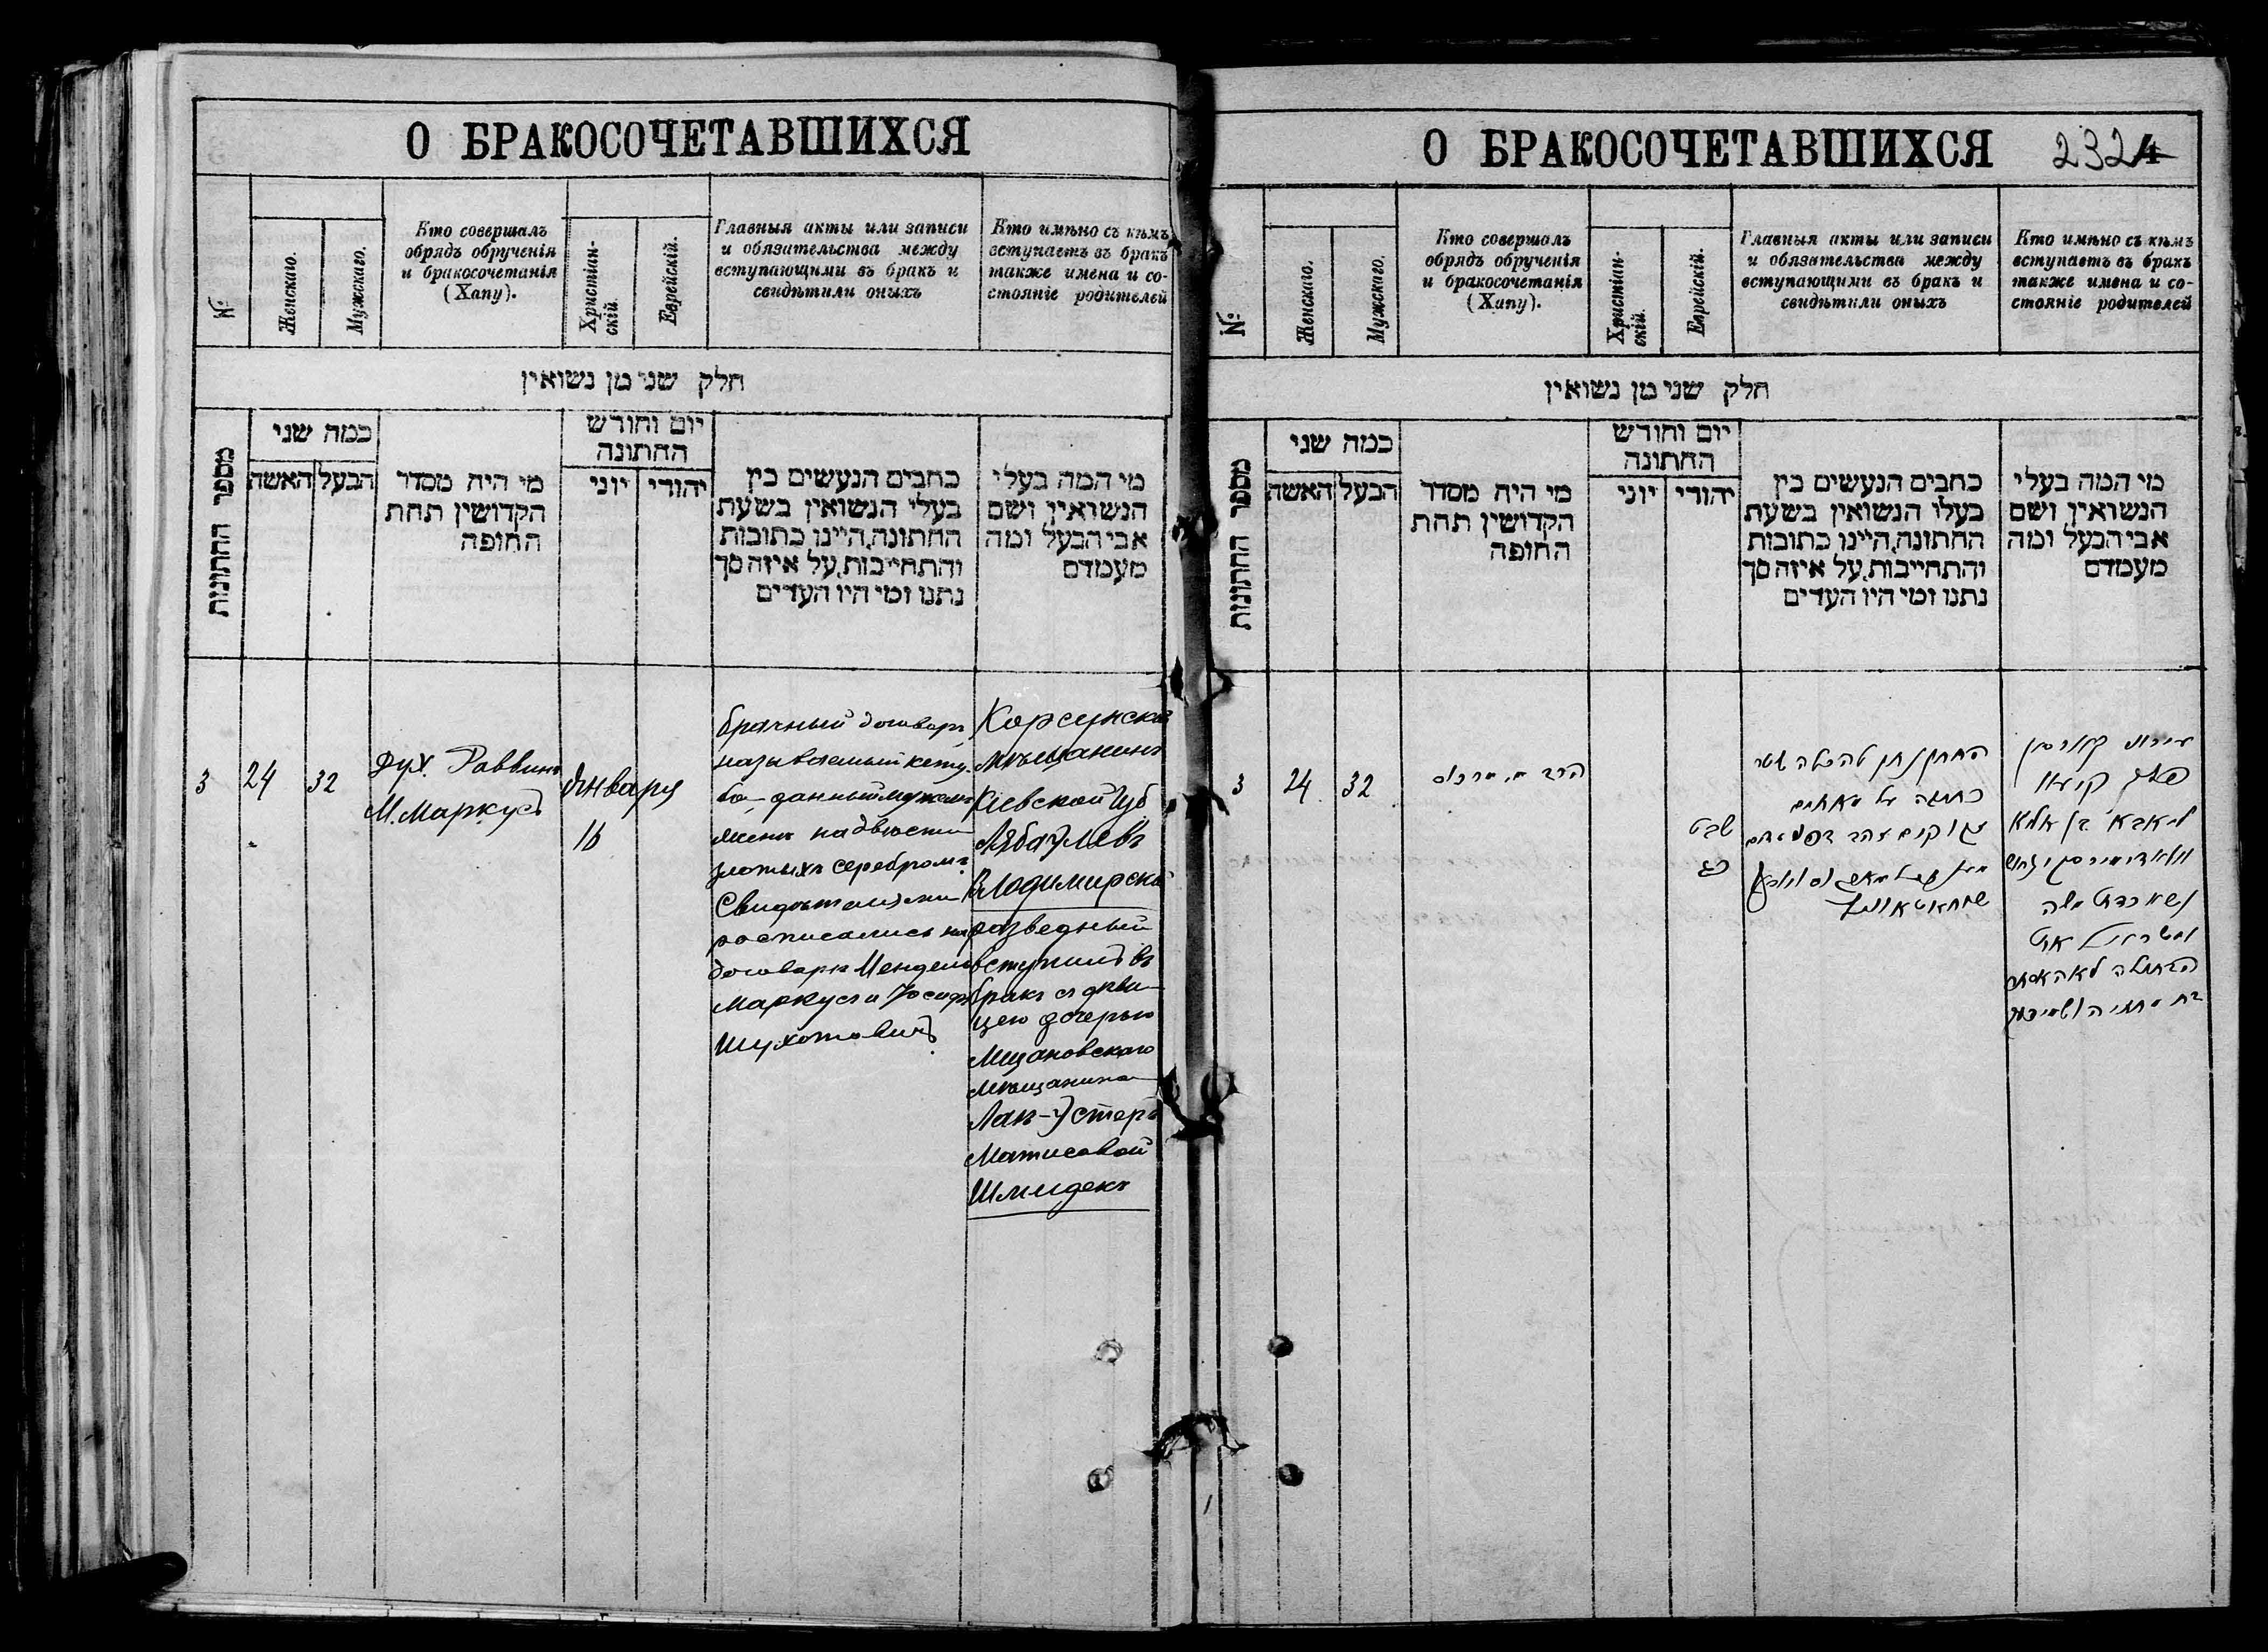 О БРАКОСОЧЕТАВШИХСЯ
№
Женскаго.
Мужскаго.
Кто совершалъ
обрядъ обрученія
и бракосочетанія
(Хапу).
Христіан-
скій.
Еврейскій.
Главныя акты или записи
и обязательства между
вступающими въ бракъ и
свидѣтили оныхъ
Кто имѣно съ кѣмъ
вступаетъ въ бракъ
также имена и со-
стояніе родителей
חלק שני מן נשואין
מספר החתונות
כמה שני
האשה
הבעל
מי היה מסדר
הקדושין תחת
החופה
יום וחודש
החתונה
יוני
יהודי
כתבים הנעשים בין
בעלי הנשואין בשעת
החתונה, היינו כתובות
והתחייבות, על איזה סך
נתנו ומי היו העדים
מי המה בעלי
הנשואין ושם
אבי הבעל ומה
מעמדם
3
24
32
Дух. Раввинъ
М. Маркусъ
Января
16
брачный договоръ
называемый кету-
ба данный мужемъ
жене на двести
злотыхъ серебромъ.
Свидѣтелями
росписались на
договоръ Мендель
Маркусъ и Іосифъ
Шухотовичъ
Корсунскій
мѣщанинъ
Кіевской Губ
Лейба
Влодимирскій
разведный
вступилъ въ
бракъ съ дѣви-
цею дочерью
мѣщанина
Матисовой
Шмидекъ
О БРАКОСОЧЕТАВШИХСЯ
232
4
№
Женскаго.
Мужскаго.
Кто совершалъ
обрядъ обрученія
и бракосочетанія
(Хапу).
Христіан-
скій.
Еврейскій.
Главныя акты или записи
и обязательства между
вступающими въ бракъ и
свидѣтили оныхъ
Кто имѣно съ кѣмъ
вступаетъ въ бракъ
также имена и со-
стояніе родителей
חלק שני מן נשואין
מספר החתונות
כמה שני
האשה
הבעל
מי היה מסדר
הקדושין תחת
החופה
יום וחודש
החתונה
יוני
יהודי
כתבים הנעשים בין
בעלי הנשואין בשעת
החתונה, היינו כתובות
והתחייבות, על איזה סך
נתנו ומי היו העדים
מי המה בעלי
הנשואין ושם
אבי הבעל ומה
מעמדם
3
24
32
הרב מ. מרכוס
שבט
החתן נתן להכלה שטר
כתובה על מאתים
זקוקים זהב